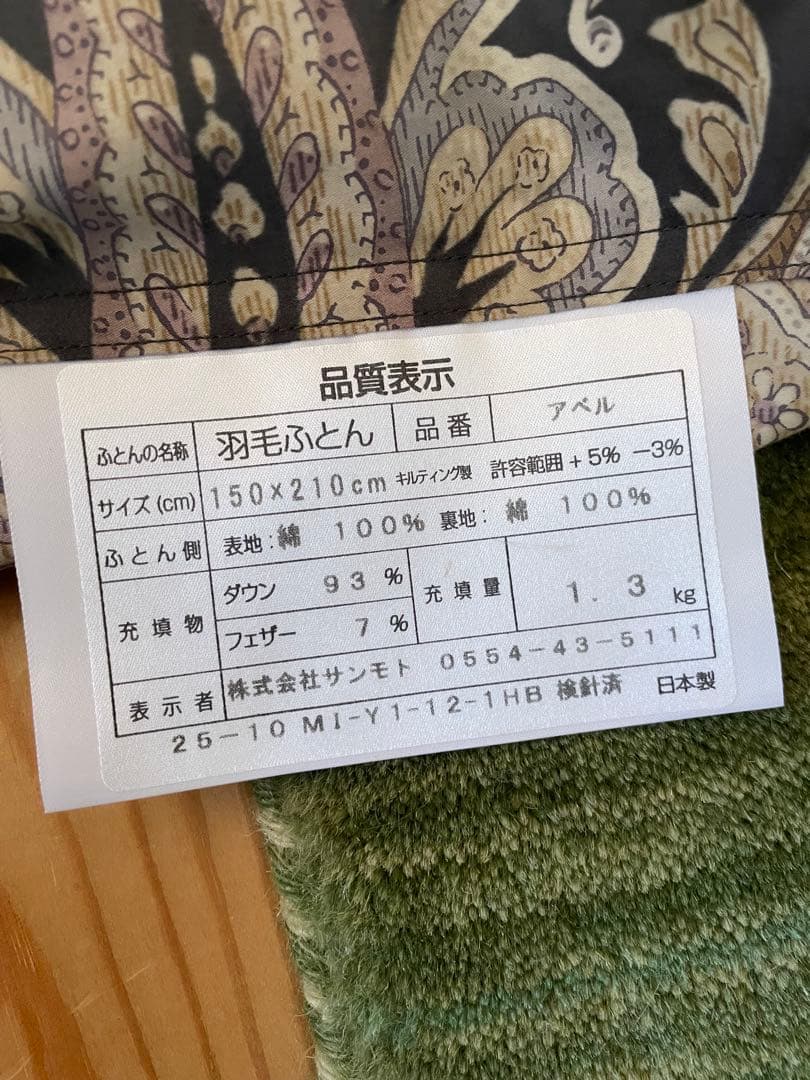 品質表示
ふとんの名称 羽毛ふとん 品番 アベル
サイズ(cm) 150×210cm キルティング製 許容範囲+5% −3%
ふとん側 表地:綿 100% 裏地:綿 100%
充填物 ダウン 93% 充填量 1.3kg
フェザー 7%
表示者 株式会社サンモト 0554-43-5111
25-10 MI-Y1-12-1HB 検針済 日本製